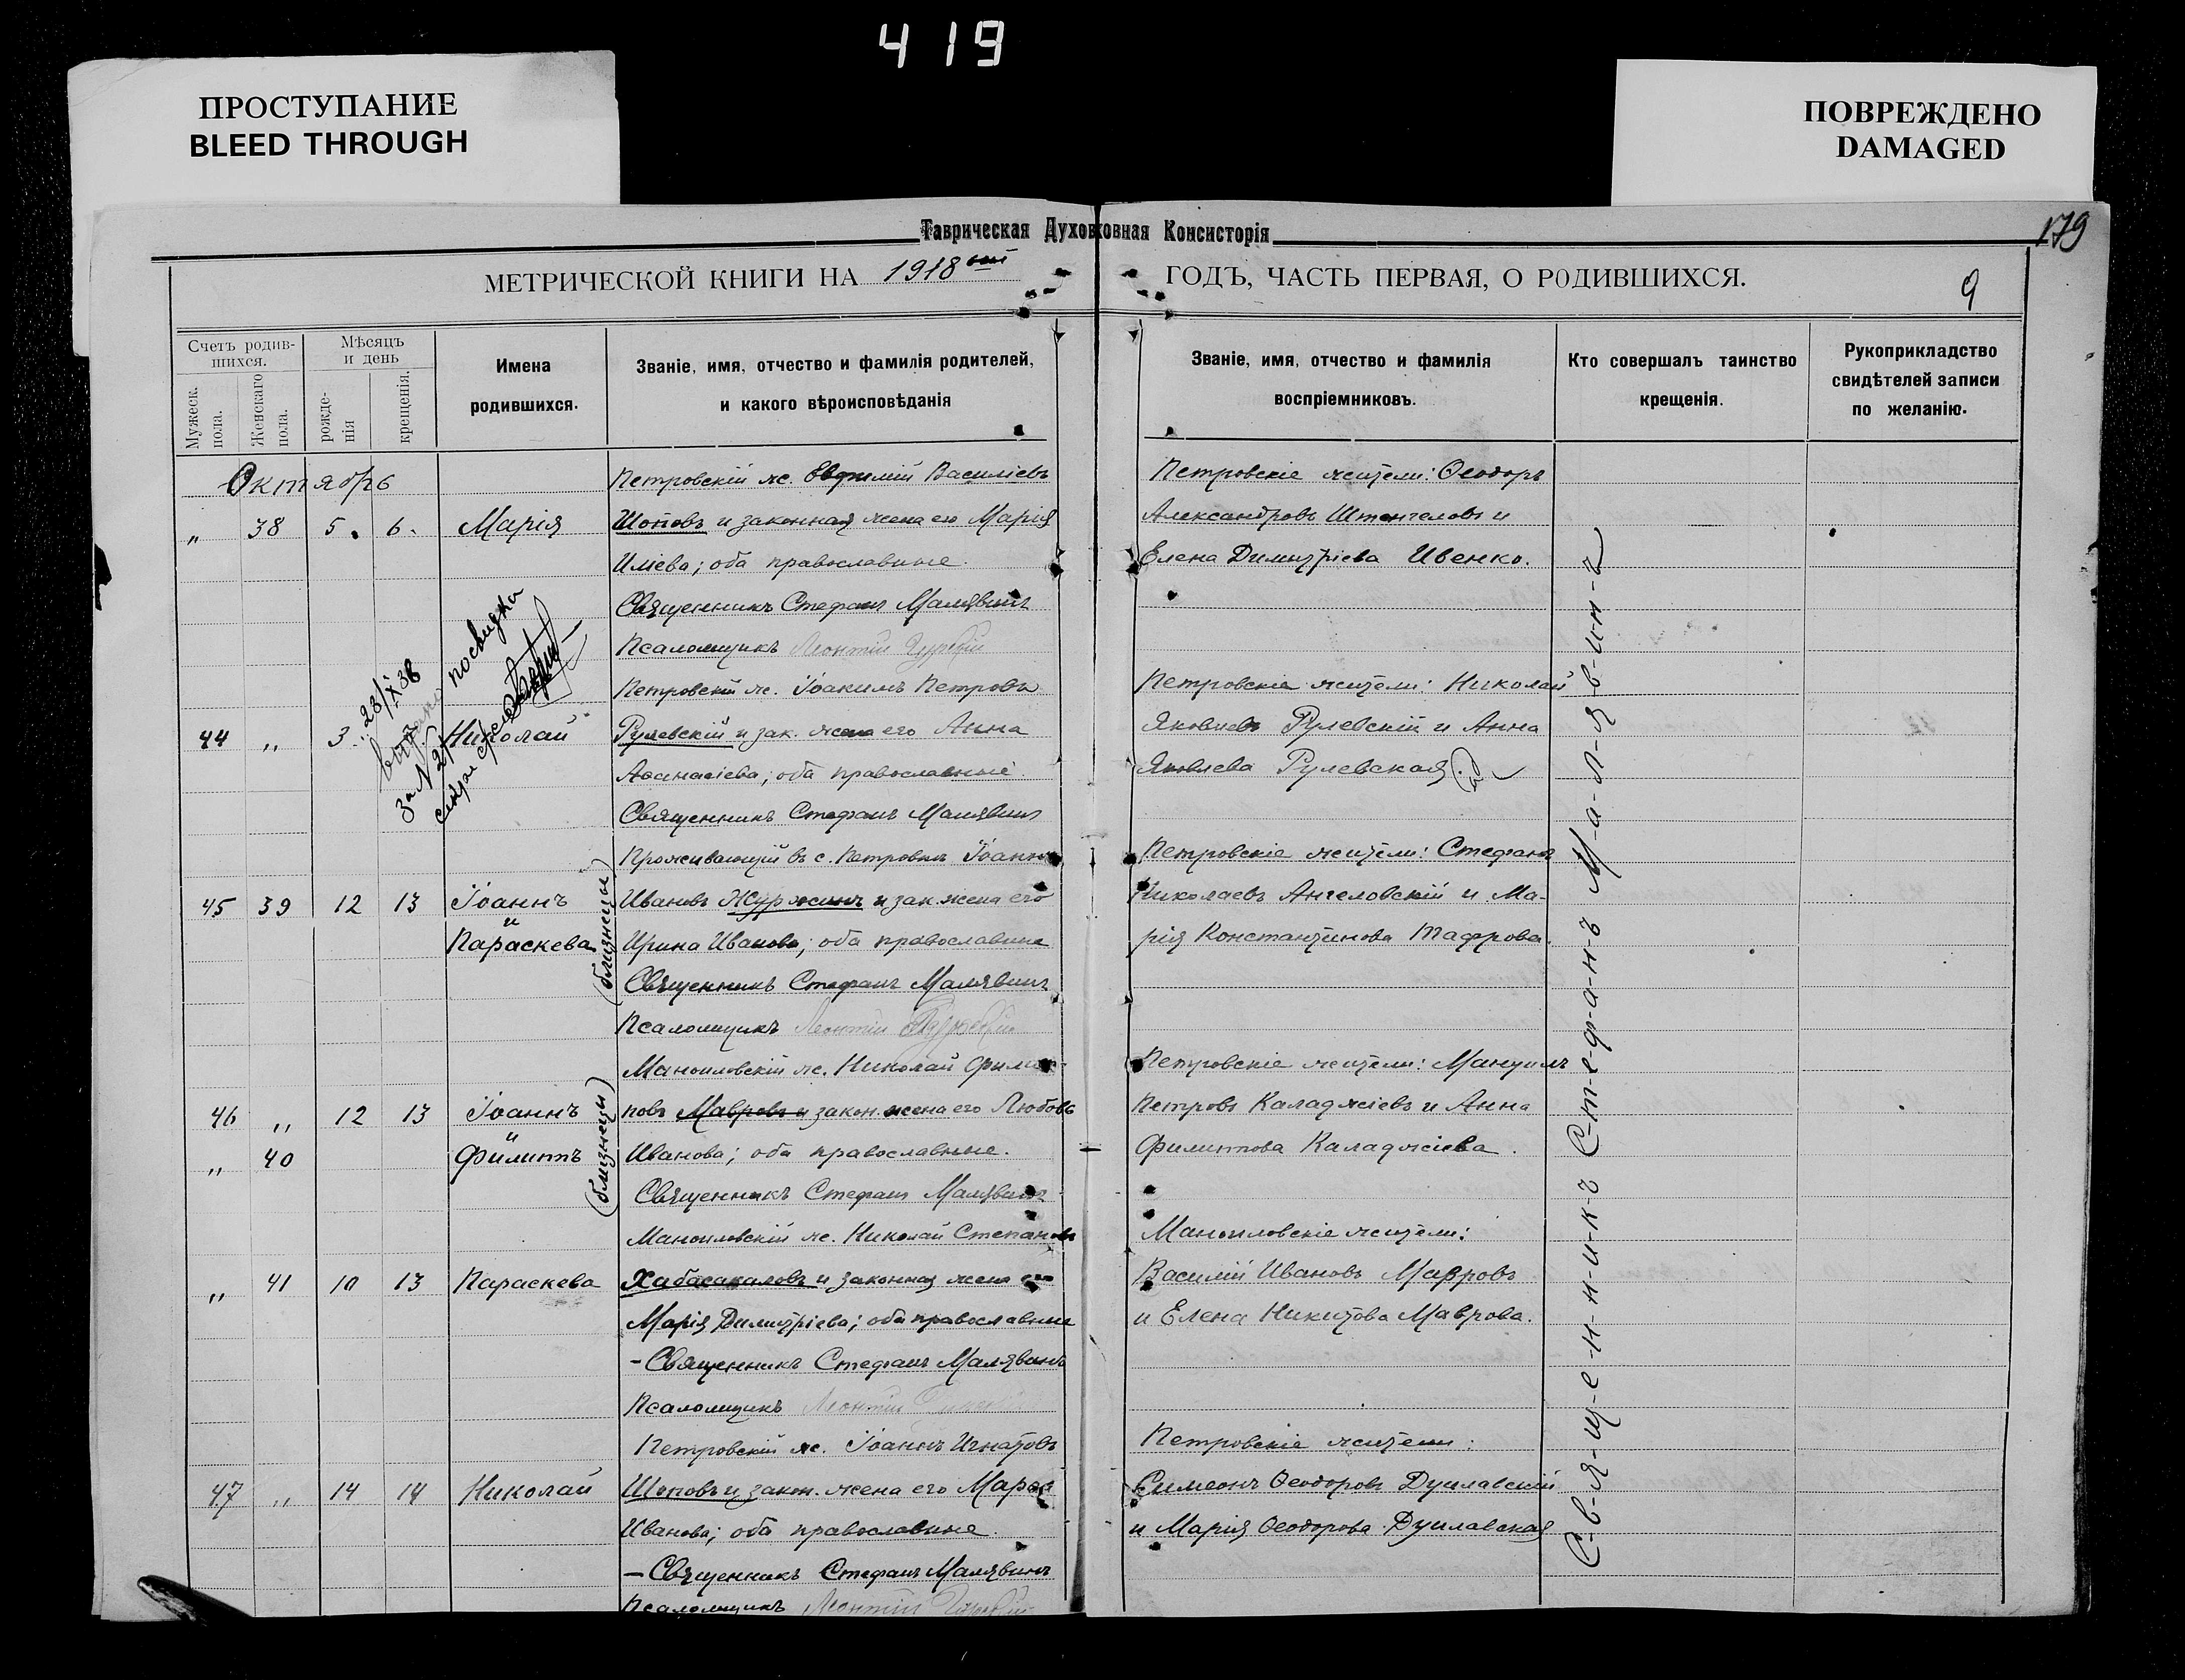 419
ПРОСТУПАНИЕ
BLEED THROUGH
ПОВРЕЖДЕНО
DAMAGED
Таврическая Духовная Консисторія
179
МЕТРИЧЕСКОЙ КНИГИ НА 1918 ый ГОДЪ, ЧАСТЬ ПЕРВАЯ, О РОДИВШИХСЯ.
9
Счетъ родив-
шихся.
Мужеск. пола.
Женскаго пола.
Мѣсяцъ
и день
рожде-
нія
крещенія.
Имена
родившихся.
Званіе, имя, отчество и фамилія родителей,
и какого вѣроисповѣданія
Званіе, имя, отчество и фамилія
воспріемниковъ.
Кто совершалъ таинство
крещенія.
Рукоприкладство
свидѣтелей записи
по желанію.
Октябрь
Петровскій ж. Евфимій Василіевъ
Петровскіе жители: Ѳеодоръ
„ 38 5. 6. Марія
Шоповъ и законная жена его Марія
Александровъ Штенгеловъ и
Иліева; оба православные.
Елена Димитріева Ивенко.
Священникъ Стефанъ Малявинъ
Псаломщикъ Леонтій
Петровскій ж. Іоакимъ Петровъ
Петровскіе жители: Николай
44 „ 3. Николай
Рулевскій и зак. жена его Анна
Яковлевъ Рулевскій и Анна
28/IX 38
посвидка
за N
Аѳанасіева; оба православные.
Яковлева Рулевская
Священникъ Стефанъ Малявинъ
Проживающій въ с. Петровкѣ Іоаннъ
Петровскіе жители: Стефанъ
45 39 12 13 Іоаннъ
Ивановъ Журжинъ и зак. жена его
Николаевъ Ангеловскій и Ма-
и
Параскева
(близнецы)
Ирина Иванова; оба православные
рія Константинова Тафрова.
Священникъ Стефанъ Малявинъ
Псаломщикъ Леонтій
Маноиловскій ж. Николай Филип-
Петровскіе жители: Мануилъ
46 „ 12 13 Іоаннъ
повъ Мавровъ и закон. жена его Любовь
Петровъ Каладжіевъ и Анна
и
„ 40 Филиппъ
(близнецы)
Иванова; оба православные.
Филиппова Каладжіева.
Священникъ Стефанъ Малявинъ
Маноиловскій ж. Николай Степановъ
Маноиловскіе жители:
„ 41 10 13 Параскева
Хабасакаловъ и законная жена его
Василій Ивановъ Мавровъ
Марія Димитріева; оба православные
и Елена Никитова Маврова.
– Священникъ Стефанъ Малявинъ
Псаломщикъ Леонтій
Петровскій ж. Іоаннъ Игнатовъ
Петровскіе жители:
47 „ 14 14 Николай
Шоповъ и закон. жена его Марія
Симеонъ Ѳеодоровъ Душлавскій
Иванова; оба православные.
и Марія Ѳеодорова Душлавская
– Священникъ Стефанъ Малявинъ
Псаломщикъ Леонтій
С-в-я-щ-е-н-н-и-к-ъ С-т-е-ф-а-н-ъ М-а-л-я-в-и-н-ъ